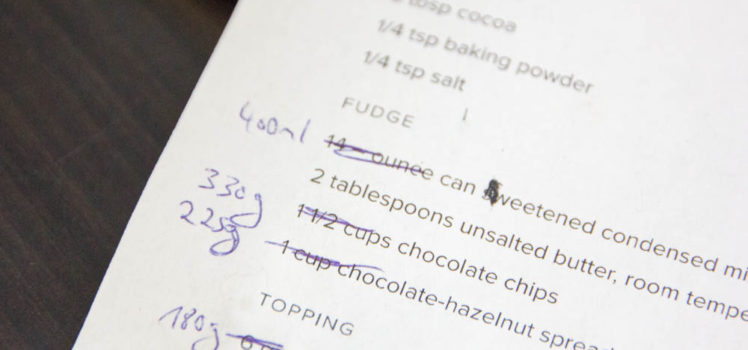 tbsp cocoa
1/4 tsp baking powder
1/4 tsp salt
FUDGE
400ml 14-ounce can sweetened condensed
2 tablespoons unsalted butter, room
330g 1 1/2 cups chocolate chips
225g 1 cup chocolate-hazelnut
TOPPING
180g